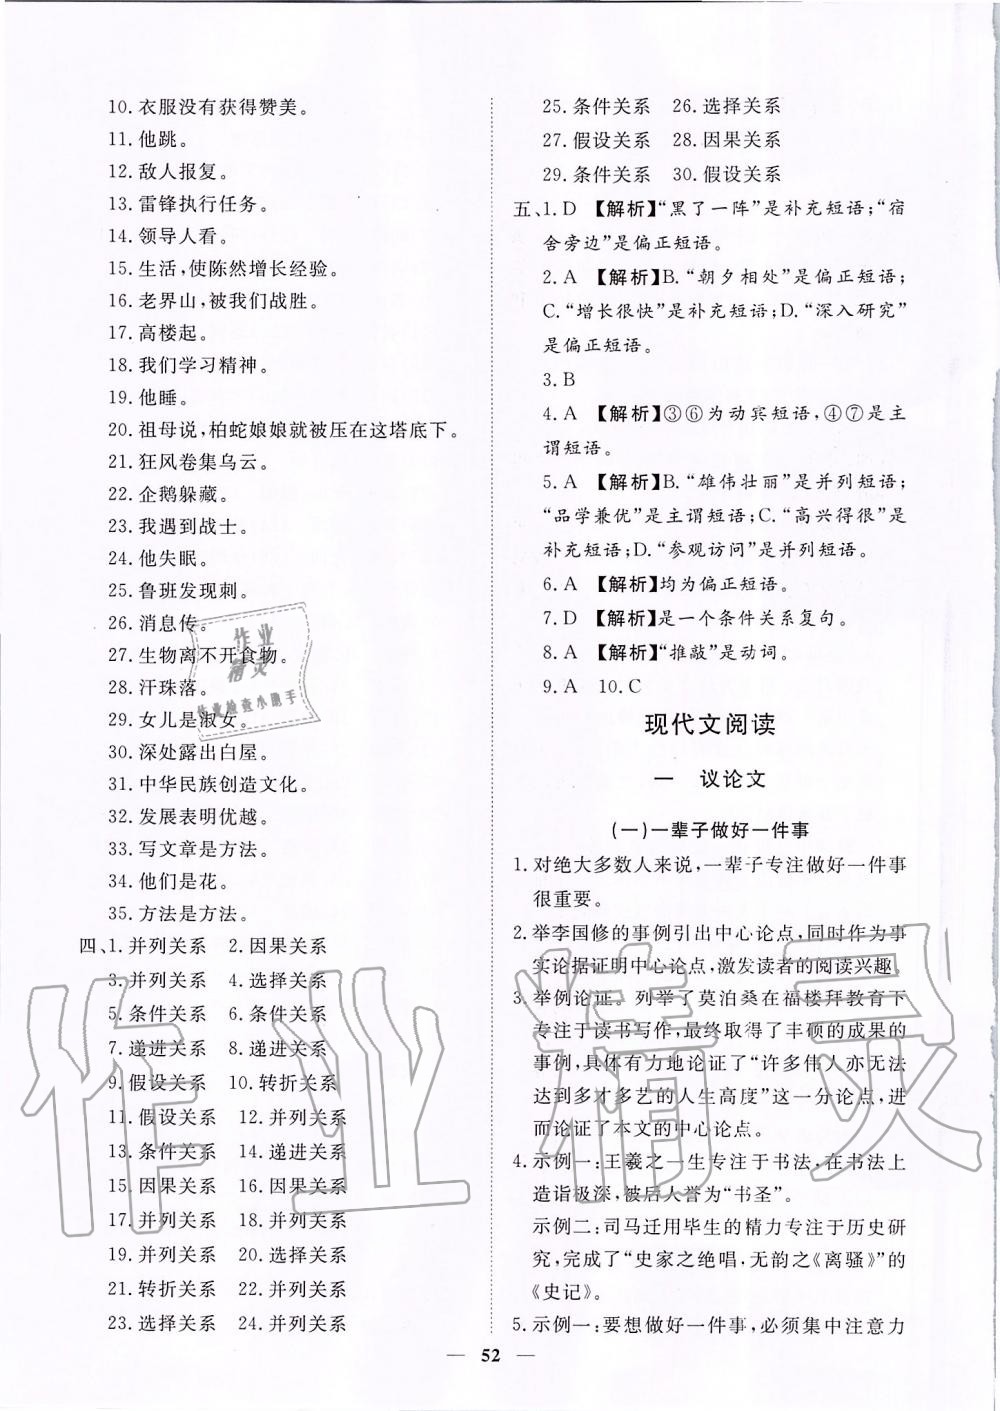 10. 衣服没有获得赞美。
11. 他跳。
12. 敌人报复。
13. 雷锋执行任务。
14. 领导人看。
15. 生活,使陈然增长经验。
16. 老界山,被我们战胜。
17. 高楼起。
18. 我们学习精神。
19. 他睡。
20. 祖母说,柏蛇娘娘就被压在这塔底下。
21. 狂风卷集乌云。
22. 企鹅躲藏。
23. 我遇到战士。
24. 他失眠。
25. 鲁班发现刺。
26. 消息传。
27. 生物离不开食物。
28. 汗珠落。
29. 女儿是淑女。
30. 深处露出白屋。
31. 中华民族创造文化。
32. 发展表明优越。
33. 写文章是方法。
34. 他们是花。
35. 方法是方法。
四、1. 并列关系 2. 因果关系
3. 并列关系 4. 选择关系
5. 条件关系 6. 条件关系
7. 递进关系 8. 递进关系
9. 假设关系 10. 转折关系
11. 假设关系 12. 并列关系
13. 条件关系 14. 递进关系
15. 因果关系 16. 因果关系
17. 并列关系 18. 并列关系
19. 并列关系 20. 选择关系
21. 转折关系 22. 并列关系
23. 选择关系 24. 并列关系
25. 条件关系 26. 选择关系
27. 假设关系 28. 因果关系
29. 条件关系 30. 假设关系
五、1. D 【解析】“黑了一阵”是补充短语;“宿
舍旁边”是偏正短语。
2. A 【解析】B. “朝夕相处”是偏正短语;
C. “增长很快”是补充短语;D. “深入研究”
是偏正短语。
3. B
4. A 【解析】③⑥为动宾短语,④⑦是主
谓短语。
5. A 【解析】B. “雄伟壮丽”是并列短语;
“品学兼优”是主谓短语;C. “高兴得很”是
补充短语;D. “参观访问”是并列短语。
6. A 【解析】均为偏正短语。
7. D 【解析】是一个条件关系复句。
8. A 【解析】“推敲”是动词。
9. A 10. C
现代文阅读
一 议论文
(一)一辈子做好一件事
1. 对绝大多数人来说,一辈子专注做好一件事
很重要。
2. 举李国修的事例引出中心论点,同时作为事
实论据证明中心论点,激发读者的阅读兴趣。
3. 举例论证。列举了莫泊桑在福楼拜教育下
专注于读书写作,最终取得了丰硕的成果的
事例,具体有力地论证了“许多伟人亦无法
达到多才多艺的人生高度”这一分论点,进
而论证了本文的中心论点。
4. 示例一:王羲之一生专注于书法,在书法上
造诣极深,被后人誉为“书圣”。
示例二:司马迁用毕生的精力专注于历史研
究,完成了“史家之绝唱,无韵之《离骚》”的
《史记》。
5. 示例一:要想做好一件事,必须集中注意力
— 52 —
作业精灵
作业
精灵
作业检查小助手